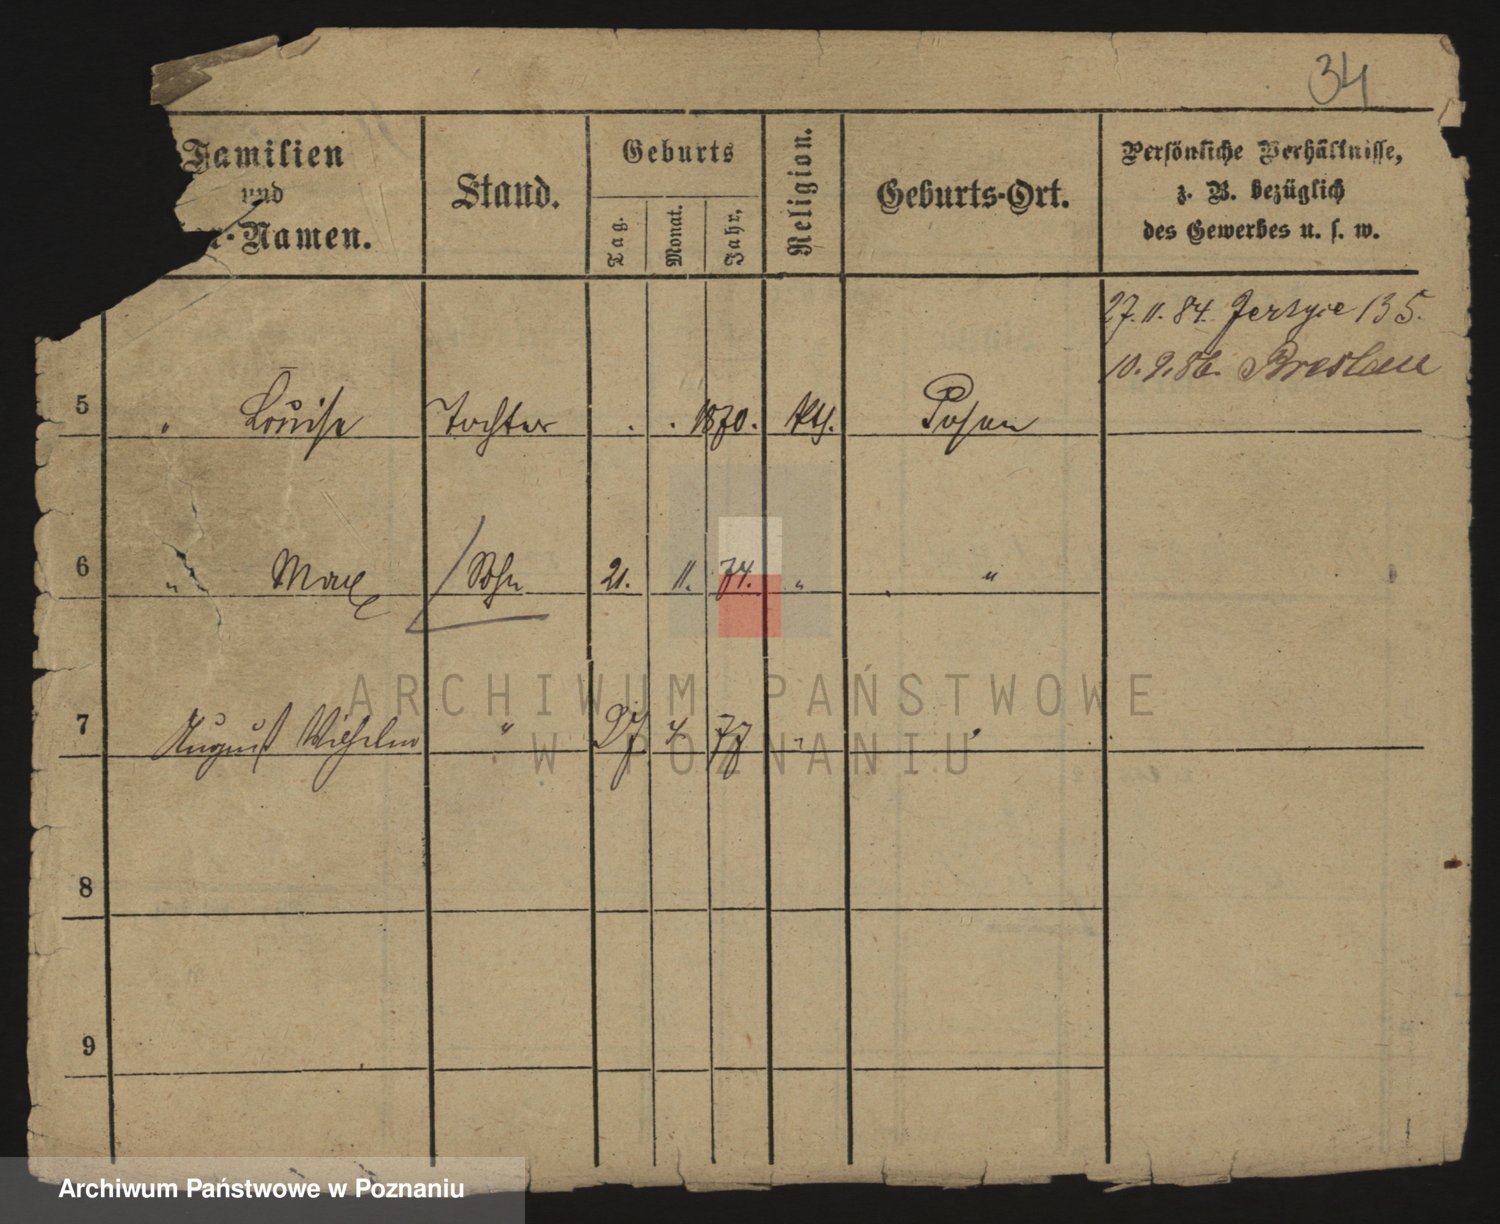 34
Familien
und
r-Namen.
Stand.
Geburts
Tag.
Monat.
Jahr,
Religion.
Geburts-Ort.
Persönliche Verhältnisse,
z. B. bezüglich
des Gewerbes u. s. w.
27. 11. 84. Jersyce 135.
10. 9. 86. Breslau
5 " Louise Tochter . . 1870. Kth. Posen
6 " Max Sohn 21. 11. 74. " "
7 August Wilhelm " 4 77 " "
8
9
ARCHIWUM PAŃSTWOWE
W POZNANIU
Archiwum Państwowe w Poznaniu